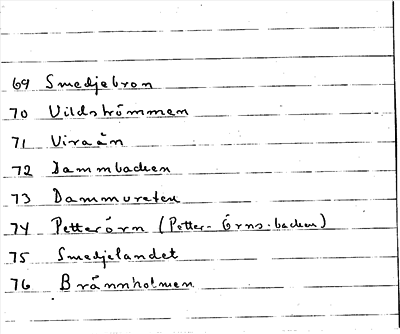 69 Smedjebron
70 Vildströmmen
71 Viraån
72 Dammbacken
73 Dammvreten
74 Petterörn (Petter-Örns-backen)
75 Smedjelandet
76 Brännholmen